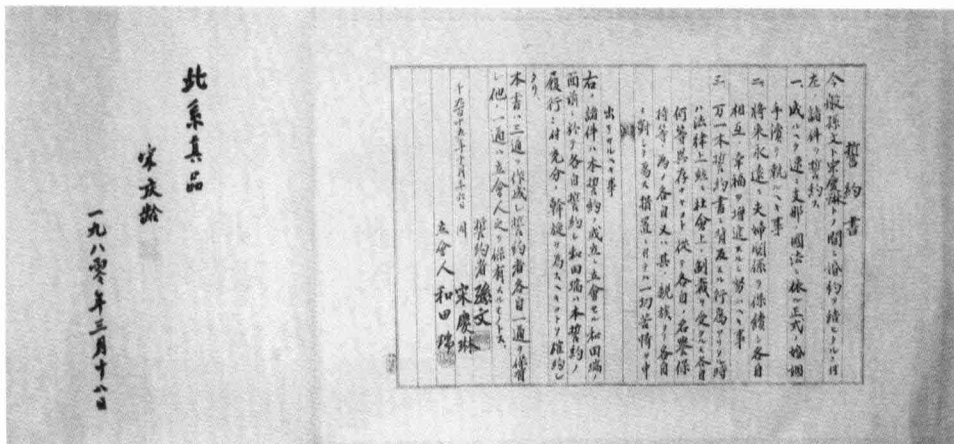 誓約書
今般孫文ト宋慶琳トノ間ニ婚約ヲ結ヒタルニ付
左ノ諸件ヲ誓約ス
一、成ルヘク速ニ支那ノ國法ニ依ル正式ノ婚姻
手續ヲ執ルヘキ事
二、将來永遠ニ夫婦關係ヲ保續シ各自
相互ニ幸福ヲ増進スルニ努ムヘキ事
三、万一本誓約書ニ背反スル行爲アリタル時
ハ法律上然ニ社會上ノ制裁ヲ受クルモ各自
何等異存ナキコト從テ各自ノ名譽保
持等ノ爲ノ各自又ハ其ノ親族ヨリ各自
ニ對シテ爲ス措置ニ付テハ一切苦情ヲ申
出テサルヘキ事
右ノ諸件ハ本誓約ノ成立ニ立會セル和田瑞ノ
面前ニ於テ各自誓約シ和田瑞ハ本誓約ノ
履行ニ付充分ノ斡旋ヲ爲スヘキコトヲ確約シ
タリ
本書ハ三通ヲ作成シ誓約者各自一通ヲ保有
シ他ノ一通ハ立會人之ヲ保有スルモノトス
千九百十五年十月廿六日
誓約者 孫文
同 宋慶琳
立會人 和田瑞
此系真品
宋庆龄
一九八零年三月十八日